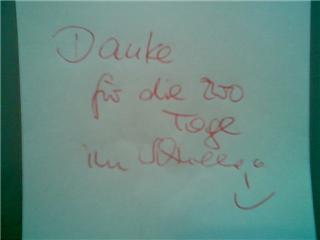 Danke
für die 200
Tage
im